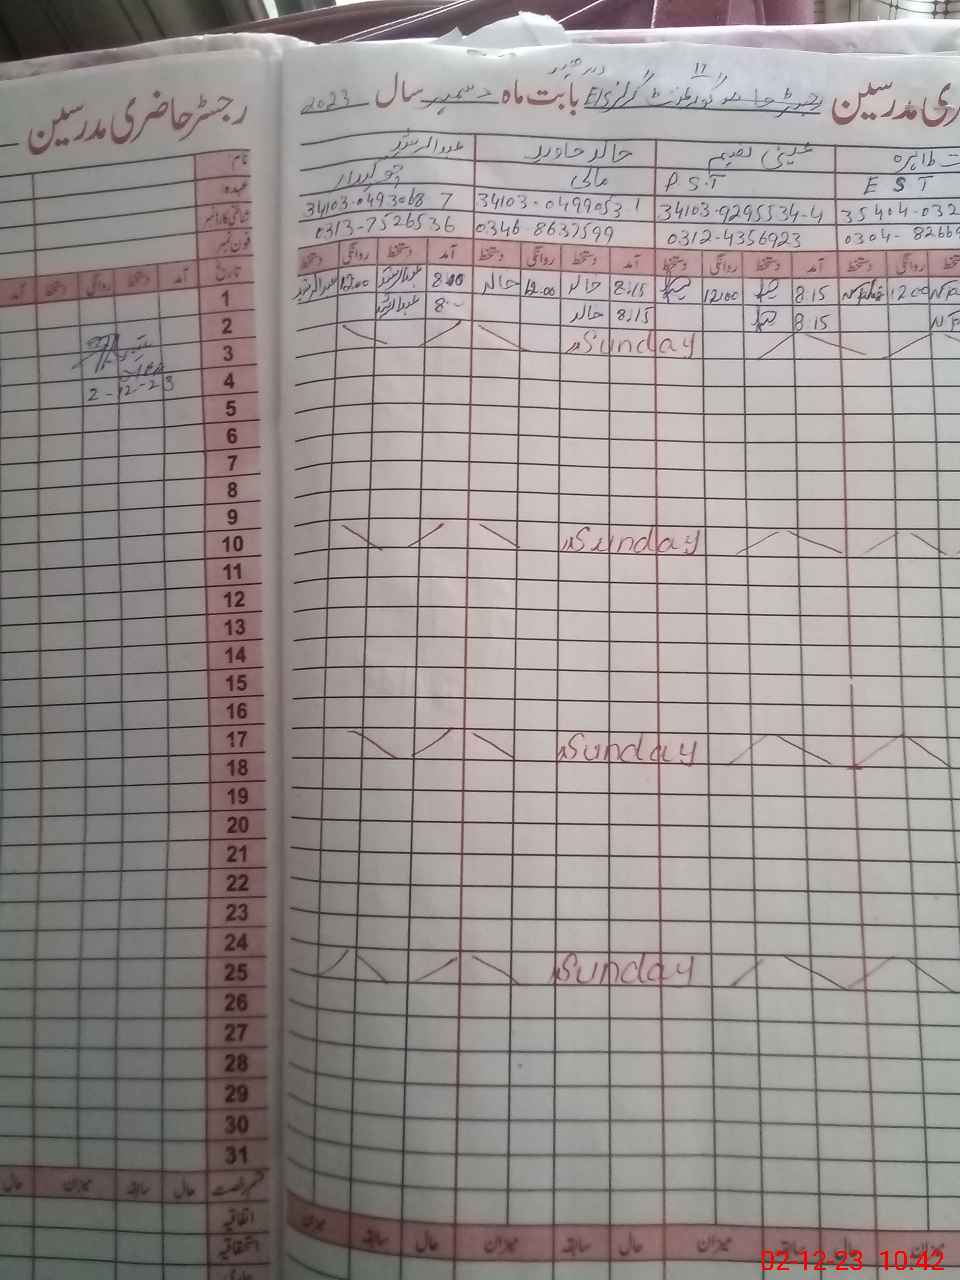 رجسٹر حاضری مدرسین
رجسٹر حاضری گورنمنٹ گرلز E/S بابت ماہ دسمبر سال 2023
نام
عہدہ
شناختی کارڈ نمبر
فون نمبر
عبدالرشید خالد جاوید عینی نعیم طاہرہ
چوکیدار مالی P.S.T E S T
34103-0493068 7 34103-0499053 1 34103-9295534-4 35404-032
0313-7526536 0346-8637599 0312-4356923 0304-82669
تاریخ آمد دستخط روانگی دستخط آمد
دستخط روانگی دستخط آمد دستخط روانگی دستخط آمد دستخط روانگی دستخط آمد دستخط روانگی دستخط
1 عبدالرشید 12:00 عبدالرشید 8:00 خالد 12:00 خالد 8:15 12:00 8:15 12:00
2 عبدالرشید 8:00 خالد 8:15 8:15
3 Sunday
4
2-12-23
5
6
7
8
9
10 Sunday
11
12
13
14
15
16
17 Sunday
18
19
20
21
22
23
24
25 Sunday
26
27
28
29
30
31
حال میزان سابقہ حال قسم رخصت
اتفاقیہ
استحقاقیہ
میزان سابقہ حال میزان سابقہ حال میزان سابقہ حال میزان
02-12-23 10:42